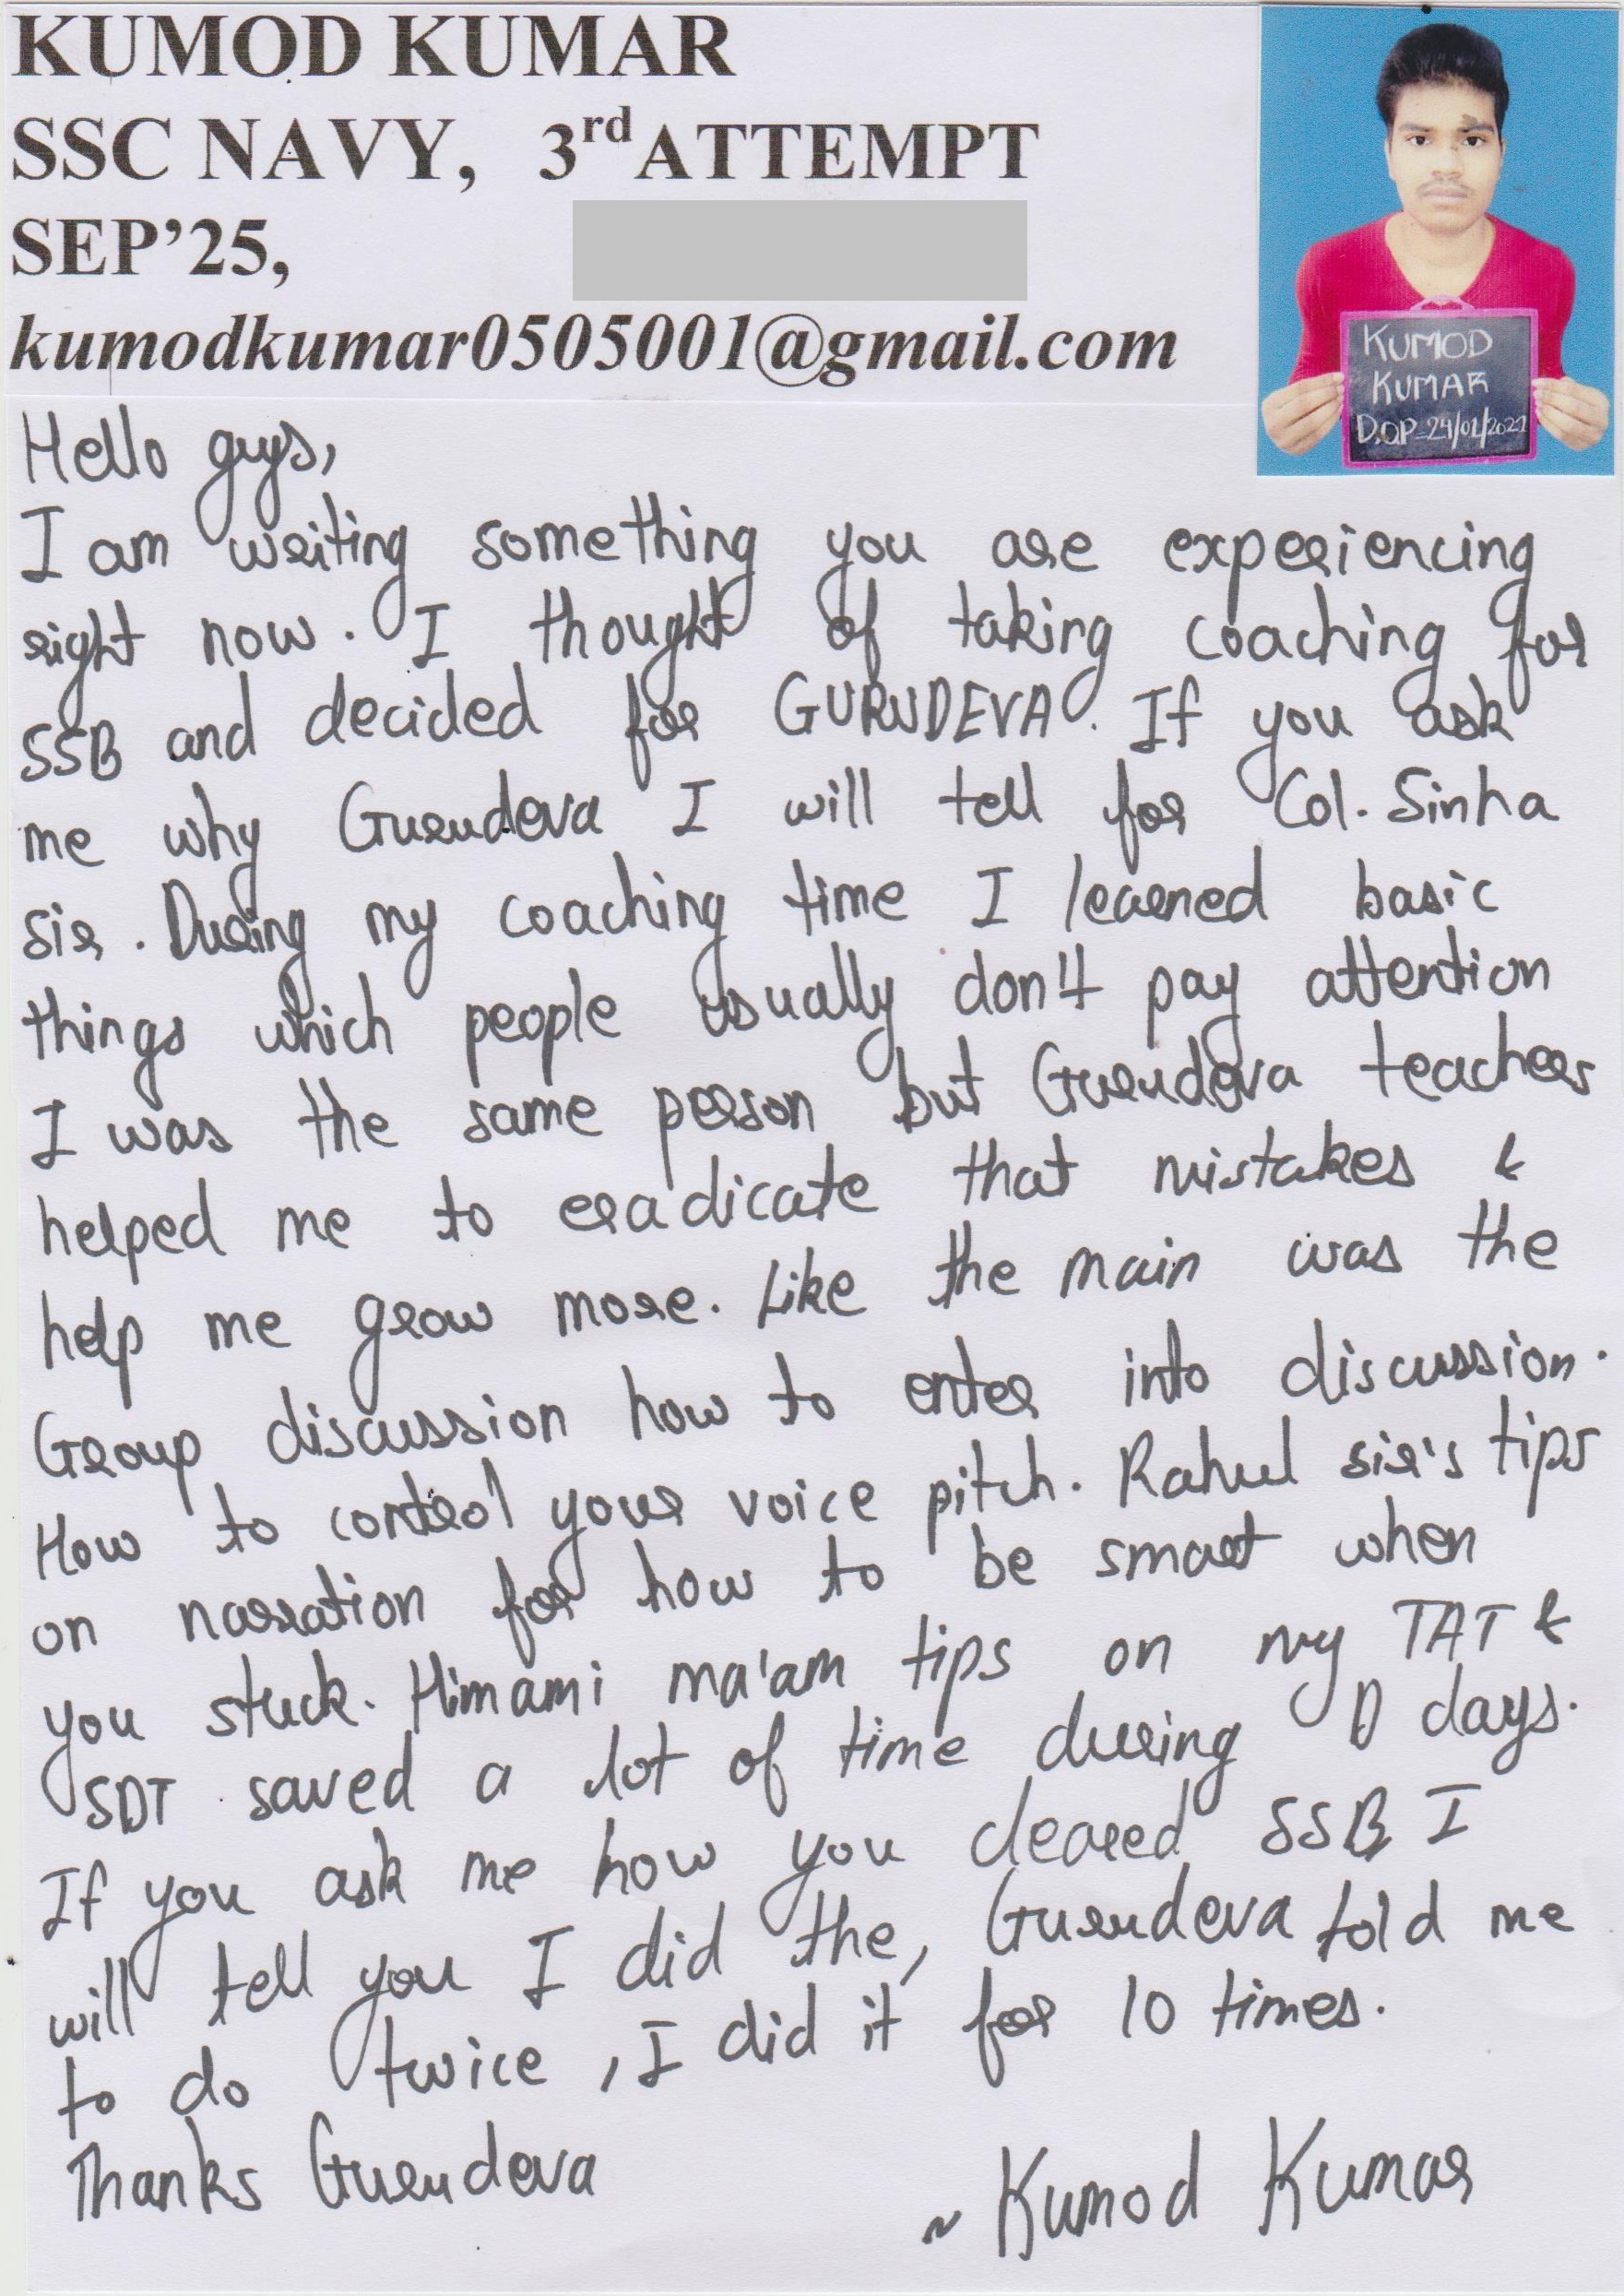 KUMOD KUMAR
SSC NAVY, 3rd ATTEMPT
SEP'25,
kumodkumar0505001@gmail.com
KUMOD
KUMAR
D.OP-24/01/2021
Hello guys,
I am writing something you are experiencing
right now. I thought of taking coaching for
SSB and decided for GURUDEVA. If you ask
me why Gurudeva I will tell for Col. Sinha
sir. During my coaching time I learned basic
things which people usually don't pay attention
I was the same person but Gurudeva teachers
helped me to eradicate that mistakes &
help me grow more. Like the main was the
Group discussion how to enter into discussion.
How to control your voice pitch. Rahul sir's tips
on narration for how to be smart when
you stuck. Himami ma'am tips on my TAT &
SDT saved a lot of time during D days.
If you ask me how you cleared SSB I
will tell you I did the, Gurudeva told me
to do twice, I did it for 10 times.
Thanks Gurudeva
~ Kumod Kumar